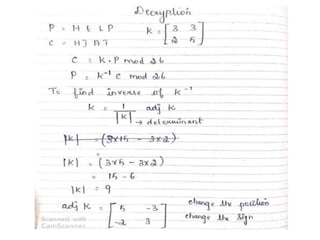 Decryption
P - H E L P
C = H I A T
K = [3 3
2 5]
C = K . P mod 26
P = K⁻¹ C mod 26
To find inverse of K⁻¹
K = 1/|K| adj K
→ determinant
|K| = (3×15 - 3×2)
|K| = (3×5 - 3×2)
= 15 - 6
|K| = 9
adj K = [5 -3
-2 3]
change the position
change the sign
Scanned with
CamScanner